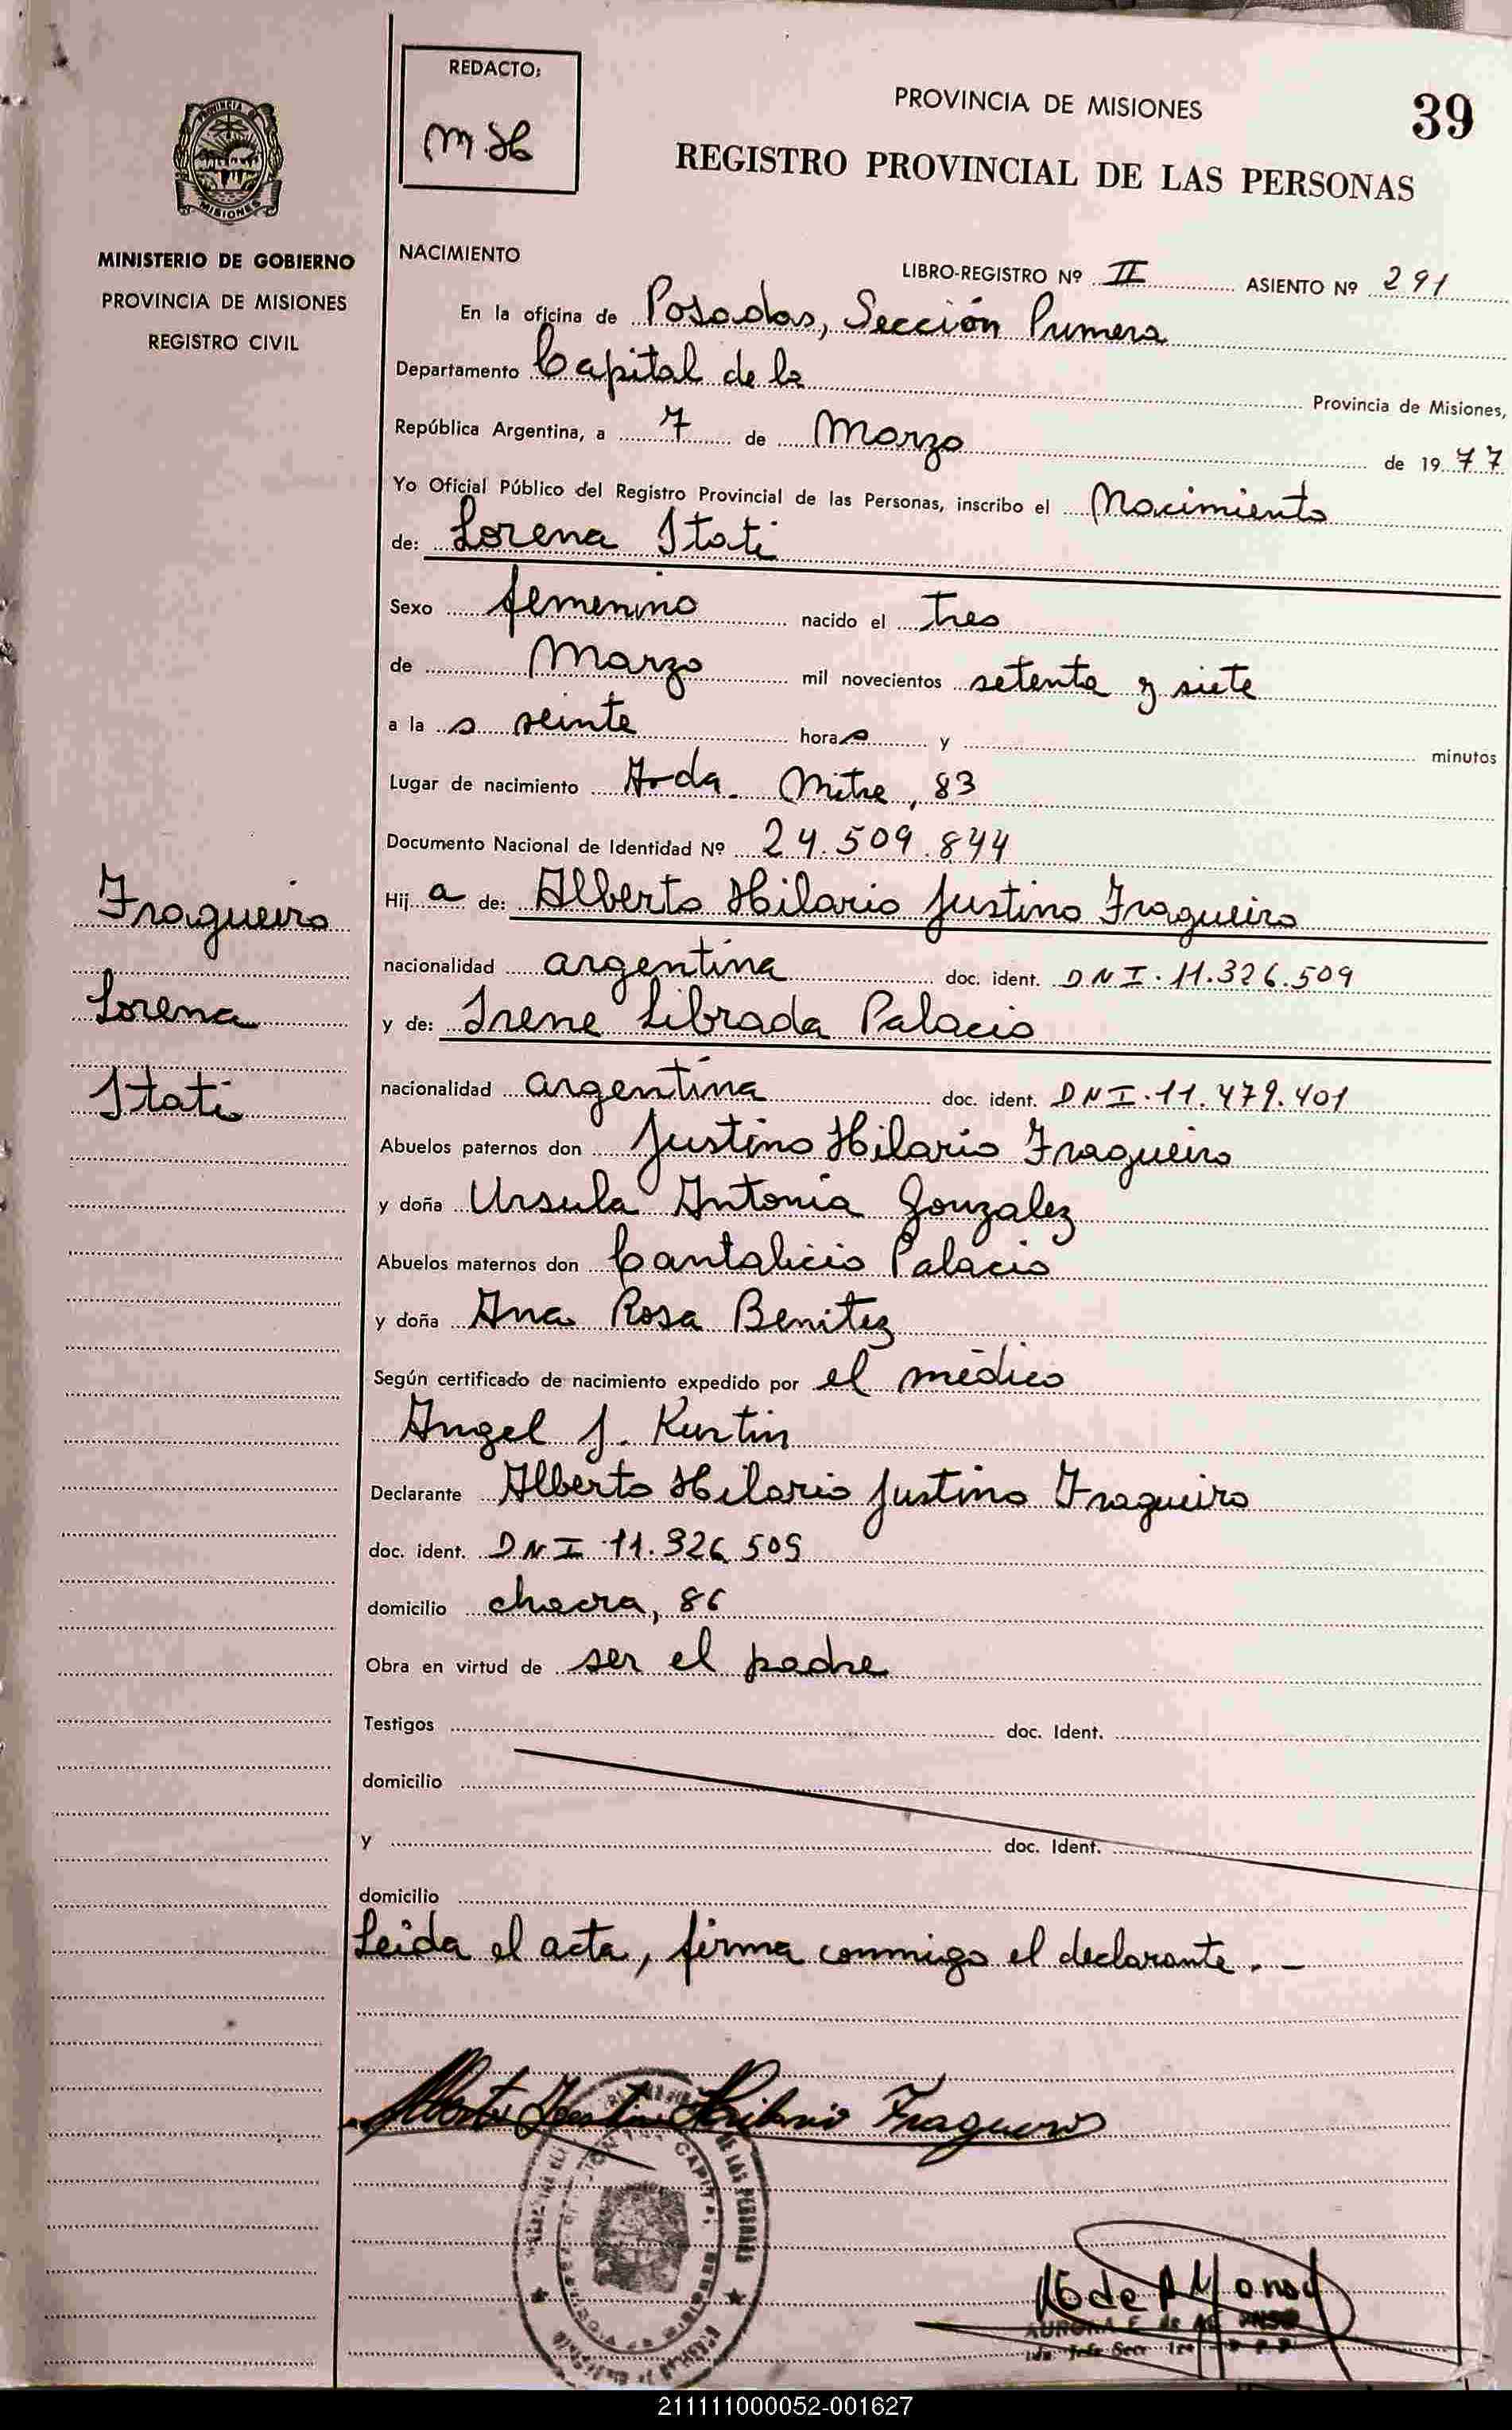 REDACTO:
PROVINCIA DE MISIONES
39
REGISTRO PROVINCIAL DE LAS PERSONAS
MINISTERIO DE GOBIERNO
PROVINCIA DE MISIONES
REGISTRO CIVIL
NACIMIENTO
LIBRO-REGISTRO Nº II ASIENTO Nº 291
En la oficina de Posadas, Sección Primera
Departamento Capital de la Provincia de Misiones,
República Argentina, a 7 de Marzo de 1977
Yo Oficial Público del Registro Provincial de las Personas, inscribo el Nacimiento
de: Lorena Itati
Sexo femenino nacido el tres
de Marzo mil novecientos setenta y siete
a la s veinte horas y minutos
Lugar de nacimiento Avda. Mitre, 83
Documento Nacional de Identidad Nº 24.509.844
Fragueiro
Lorena
Itati
Hij a de: Alberto Hilario Justino Fragueiro
nacionalidad argentina doc. ident. DNI. 11.326.509
y de: Irene Librada Palacio
nacionalidad argentina doc. ident. DNI. 11.479.401
Abuelos paternos don Justino Hilario Fragueiro
y doña Ursula Antonia Gonzalez
Abuelos maternos don Cantalicio Palacio
y doña Ana Rosa Benitez
Según certificado de nacimiento expedido por el médico
Angel J. Kurtin
Declarante Alberto Hilario Justino Fragueiro
doc. ident. DNI. 11.326.509
domicilio chacra, 86
Obra en virtud de ser el padre
Testigos doc. Ident.
domicilio
y doc. Ident.
domicilio
Leida el acta, firma conmigo el declarante. -
Alberto Justino Hilario Fragueiro
211111000052-001627